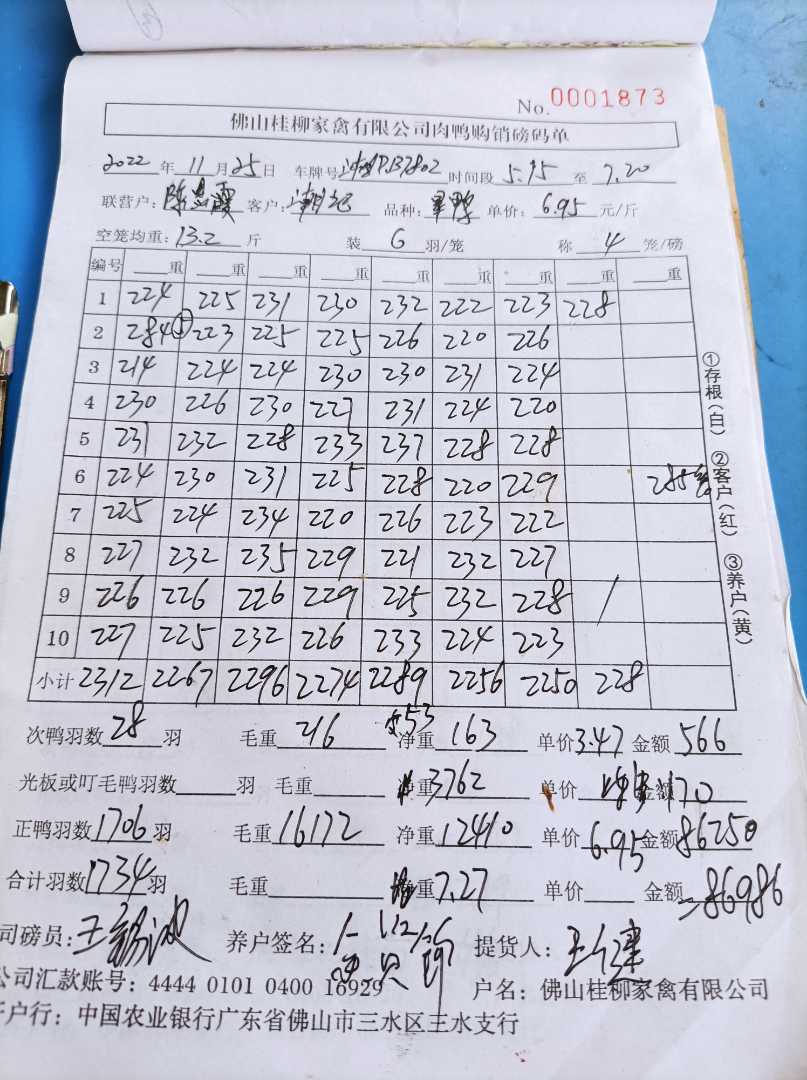 No. 0001873
佛山桂柳家禽有限公司肉鸭购销磅码单
2022年11月25日 车牌号 时间段 5.15 至 7.20
联营户: 陈 霞 客户: 潮记 品种: 单价: 6.95 元/斤
空笼均重: 13.2 斤 装 6 羽/笼 称 4 笼/磅
编号 重 重 重 重 重 重 重 重 重
1 224 225 231 230 232 222 223 228
2 284⑤ 223 225 225 226 220 226
3 214 224 224 230 230 231 224
4 230 226 230 227 231 224 220
5 231 232 228 233 237 228 228
6 224 230 231 225 228 220 229 285
7 225 224 234 220 226 223 222
8 227 232 235 229 221 232 227
9 226 226 226 229 225 232 228 /
10 227 225 232 226 233 224 223
小计 2312 2267 2296 2274 2289 2256 2250 228
①存根(白) ②客户(红) ③养户(黄)
次鸭羽数 28 羽 毛重 216 53 净重 163 单价 3.47 金额 566
光板或叮毛鸭羽数 羽 毛重 净重 3762 单价 金额 170
正鸭羽数 1706 羽 毛重 16172 净重 12410 单价 6.95 金额 86250
合计羽数 1734 羽 毛重 净重 7.27 单价 金额 =86986
司磅员: 王 养户签名: 提货人: 王
公司汇款账号: 4444 0101 0400 16929 户名: 佛山桂柳家禽有限公司
户行: 中国农业银行广东省佛山市三水区三水支行